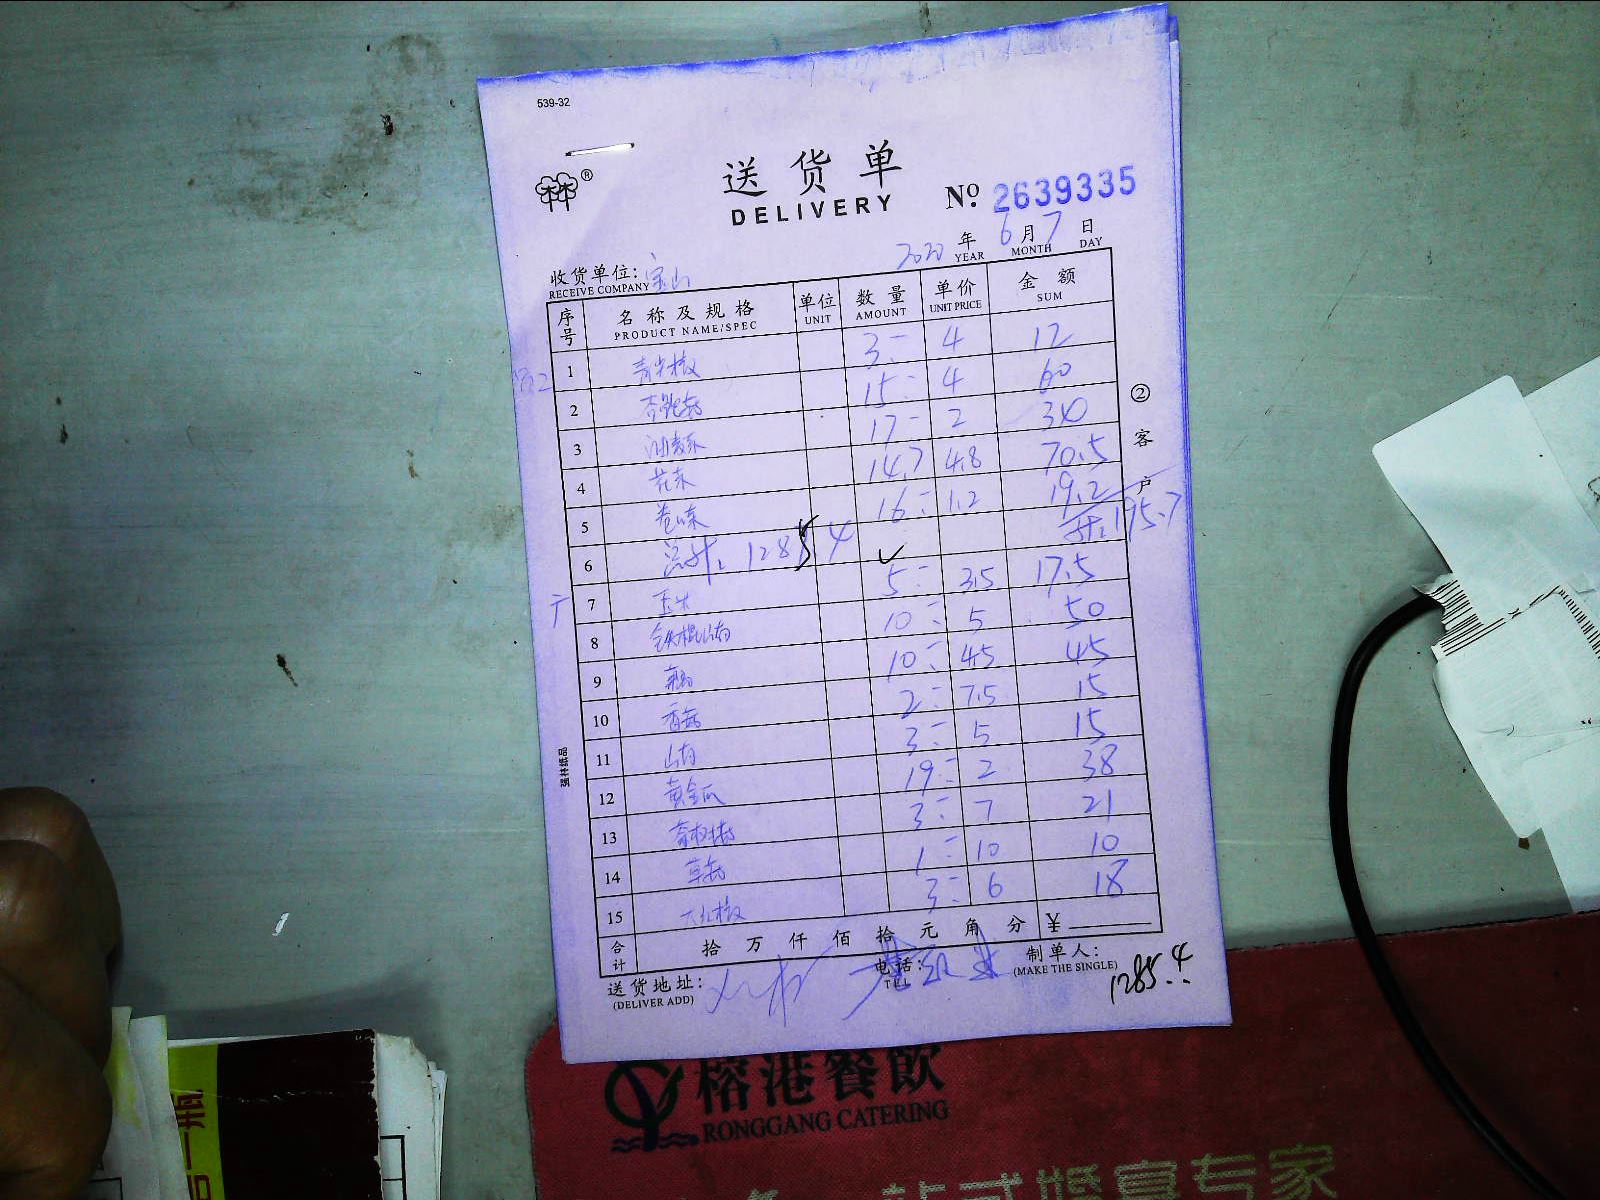 539-32
送货单
DELIVERY
№ 2639335
2020 年 YEAR 6 月 MONTH 7 日 DAY
收货单位: 宝山
RECEIVE COMPANY
序号 名称及规格 PRODUCT NAME/SPEC 单位 UNIT 数量 AMOUNT 单价 UNIT PRICE 金额 SUM
1 青尖椒 3 4 12
2 杏鲍菇 15 4 60
3 油麦菜 17 2 34
4 花菜 14.7 4.8 70.5
5 卷心菜 16 1.2 19.2
计: 195.7
6 总计: 1285.4 ✓
7 玉米 5 3.5 17.5
8 铁棍山药 10 5 50
9 10 4.5 45
10 香菇 2 7.5 15
11 山药 3 5 15
12 黄金瓜 19 2 38
13 3 7 21
14 草菇 1 10 10
15 大红椒 3 6 18
合计 拾 万 仟 佰 拾 元 角 分 ¥
送货地址:
(DELIVER ADD)
电话:
TEL
制单人:
(MAKE THE SINGLE)
1285.4
② 客户
强林纸品
榕港餐飲
RONGGANG CATERING
一站式婚宴专家